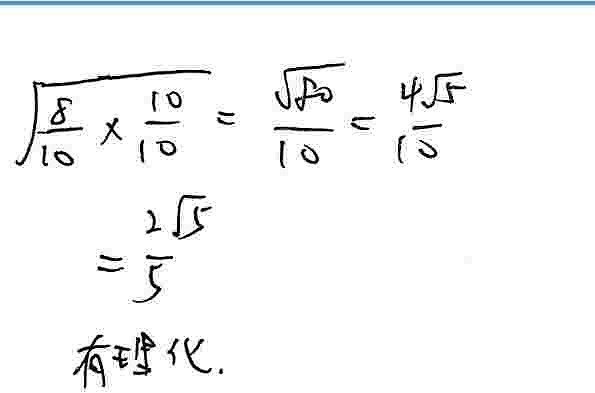 √(8/10 × 10/10) = √80/10 = 4√5/10
= 2√5/5
有理化.